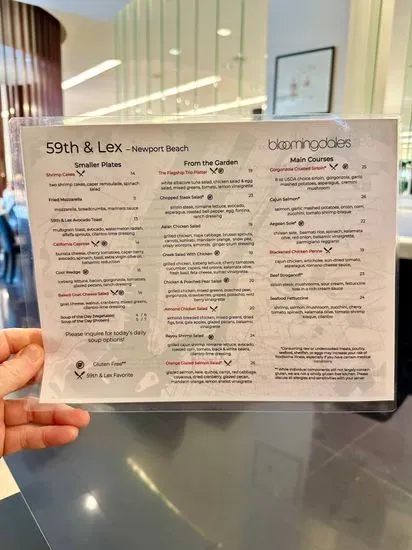 59th & Lex – Newport Beach
bloomingdale's
Smaller Plates
Shrimp Cakes 14
two shrimp cakes, caper remoulade, spinach
salad
Fried Mozzarella
mozzarella, breadcrumbs, marinara sauce
59th & Lex Avocado Toast 13
multigrain toast, avocado, watermelon radish,
alfalfa sprouts, cilantro-lime dressing
California Caprese 14
burrata cheese, cherry tomatoes, caper berries,
avocado, spinach, toast, extra virgin olive oil,
balsamic reduction
Cool Wedge
iceberg lettuce, bacon, gorgonzola, tomatoes,
glazed pecans, ranch dressing
Baked Goat Cheese Salad 14
goat cheese, walnut, cranberry, mixed greens,
cilantro-lime dressing
Soup of the Day (Vegetable)
Soup of the Day (Protein)
Please inquire for today's daily
soup options!
Gluten Free**
59th & Lex Favorite
From the Garden
The Flagship Trio Platter 19
white albacore tuna salad, chicken salad & egg
salad, mixed greens, tomato, lemon vinaigrette
Chopped Steak Salad*
sirloin steak, romaine lettuce, avocado,
asparagus, roasted bell pepper, egg, fontina,
ranch dressing
Asian Chicken Salad
grilled chicken, napa cabbage, brussel sprouts,
carrots, kohlrabi, mandarin orange, snow pea,
crispy wontons, almonds, ginger-plum dressing
Greek Salad With Chicken
grilled chicken, iceberg lettuce, cherry tomatoes,
cucumber, capers, red onions, kalamata olive,
fresh basil, feta cheese, sumac vinaigrette
Chicken & Poached Pear Salad 20
grilled chicken, mixed greens, poached pear,
gorgonzola, strawberries, grapes, pistachio, wild
berry vinaigrette
Almond Chicken Salad
almond breaded chicken, mixed greens, dried
figs, brie, gala apples, glazed pecans, balsamic
vinaigrette
Bayou Shrimp Salad
grilled cajun shrimp, romaine lettuce, avocado,
roasted corn, tomato, black & white beans,
cilantro-lime dressing
Orange Glazed Salmon Salad* 26
glazed salmon, kale, quinoa, carrot, red cabbage,
couscous, dried cranberry, glazed pecan,
mandarin orange, lemon shallot vinaigrette
Main Courses
Gorgonzola Crusted Sirloin* 25
8 oz USDA choice sirloin, gorgonzola, garlic
mashed potatoes, asparagus, cremini
mushroom
Cajun Salmon* 26
salmon, garlic mashed potatoes, onion, corn,
zucchini, tomato shrimp bisque
Aegean Sole* 22
chicken sole, basmati rice, spinach, kalamata
olive, red onion, balsamic vinaigrette,
parmigiano reggiano
Blackened Chicken Penne 19
cajun chicken, artichoke, sun dried tomato,
asparagus, romano cheese sauce
Beef Stroganoff* 23
sirloin steak, mushrooms, sour cream, fettuccine
toss in a rich cream sauce
Seafood Fettuccine 24
shrimp, salmon, mushroom, zucchini, cherry
tomato, spinach, kalamata olive, tomato shrimp
bisque, cilantro
*Consuming raw or undercooked meats, poultry,
seafood, shellfish, or eggs may increase your risk of
foodborne illness, especially if you have certain medical
conditions
** While individual components will not largely contain
gluten, we are not a wholly gluten-free kitchen. Please
discuss all allergies and sensitivities with your server.